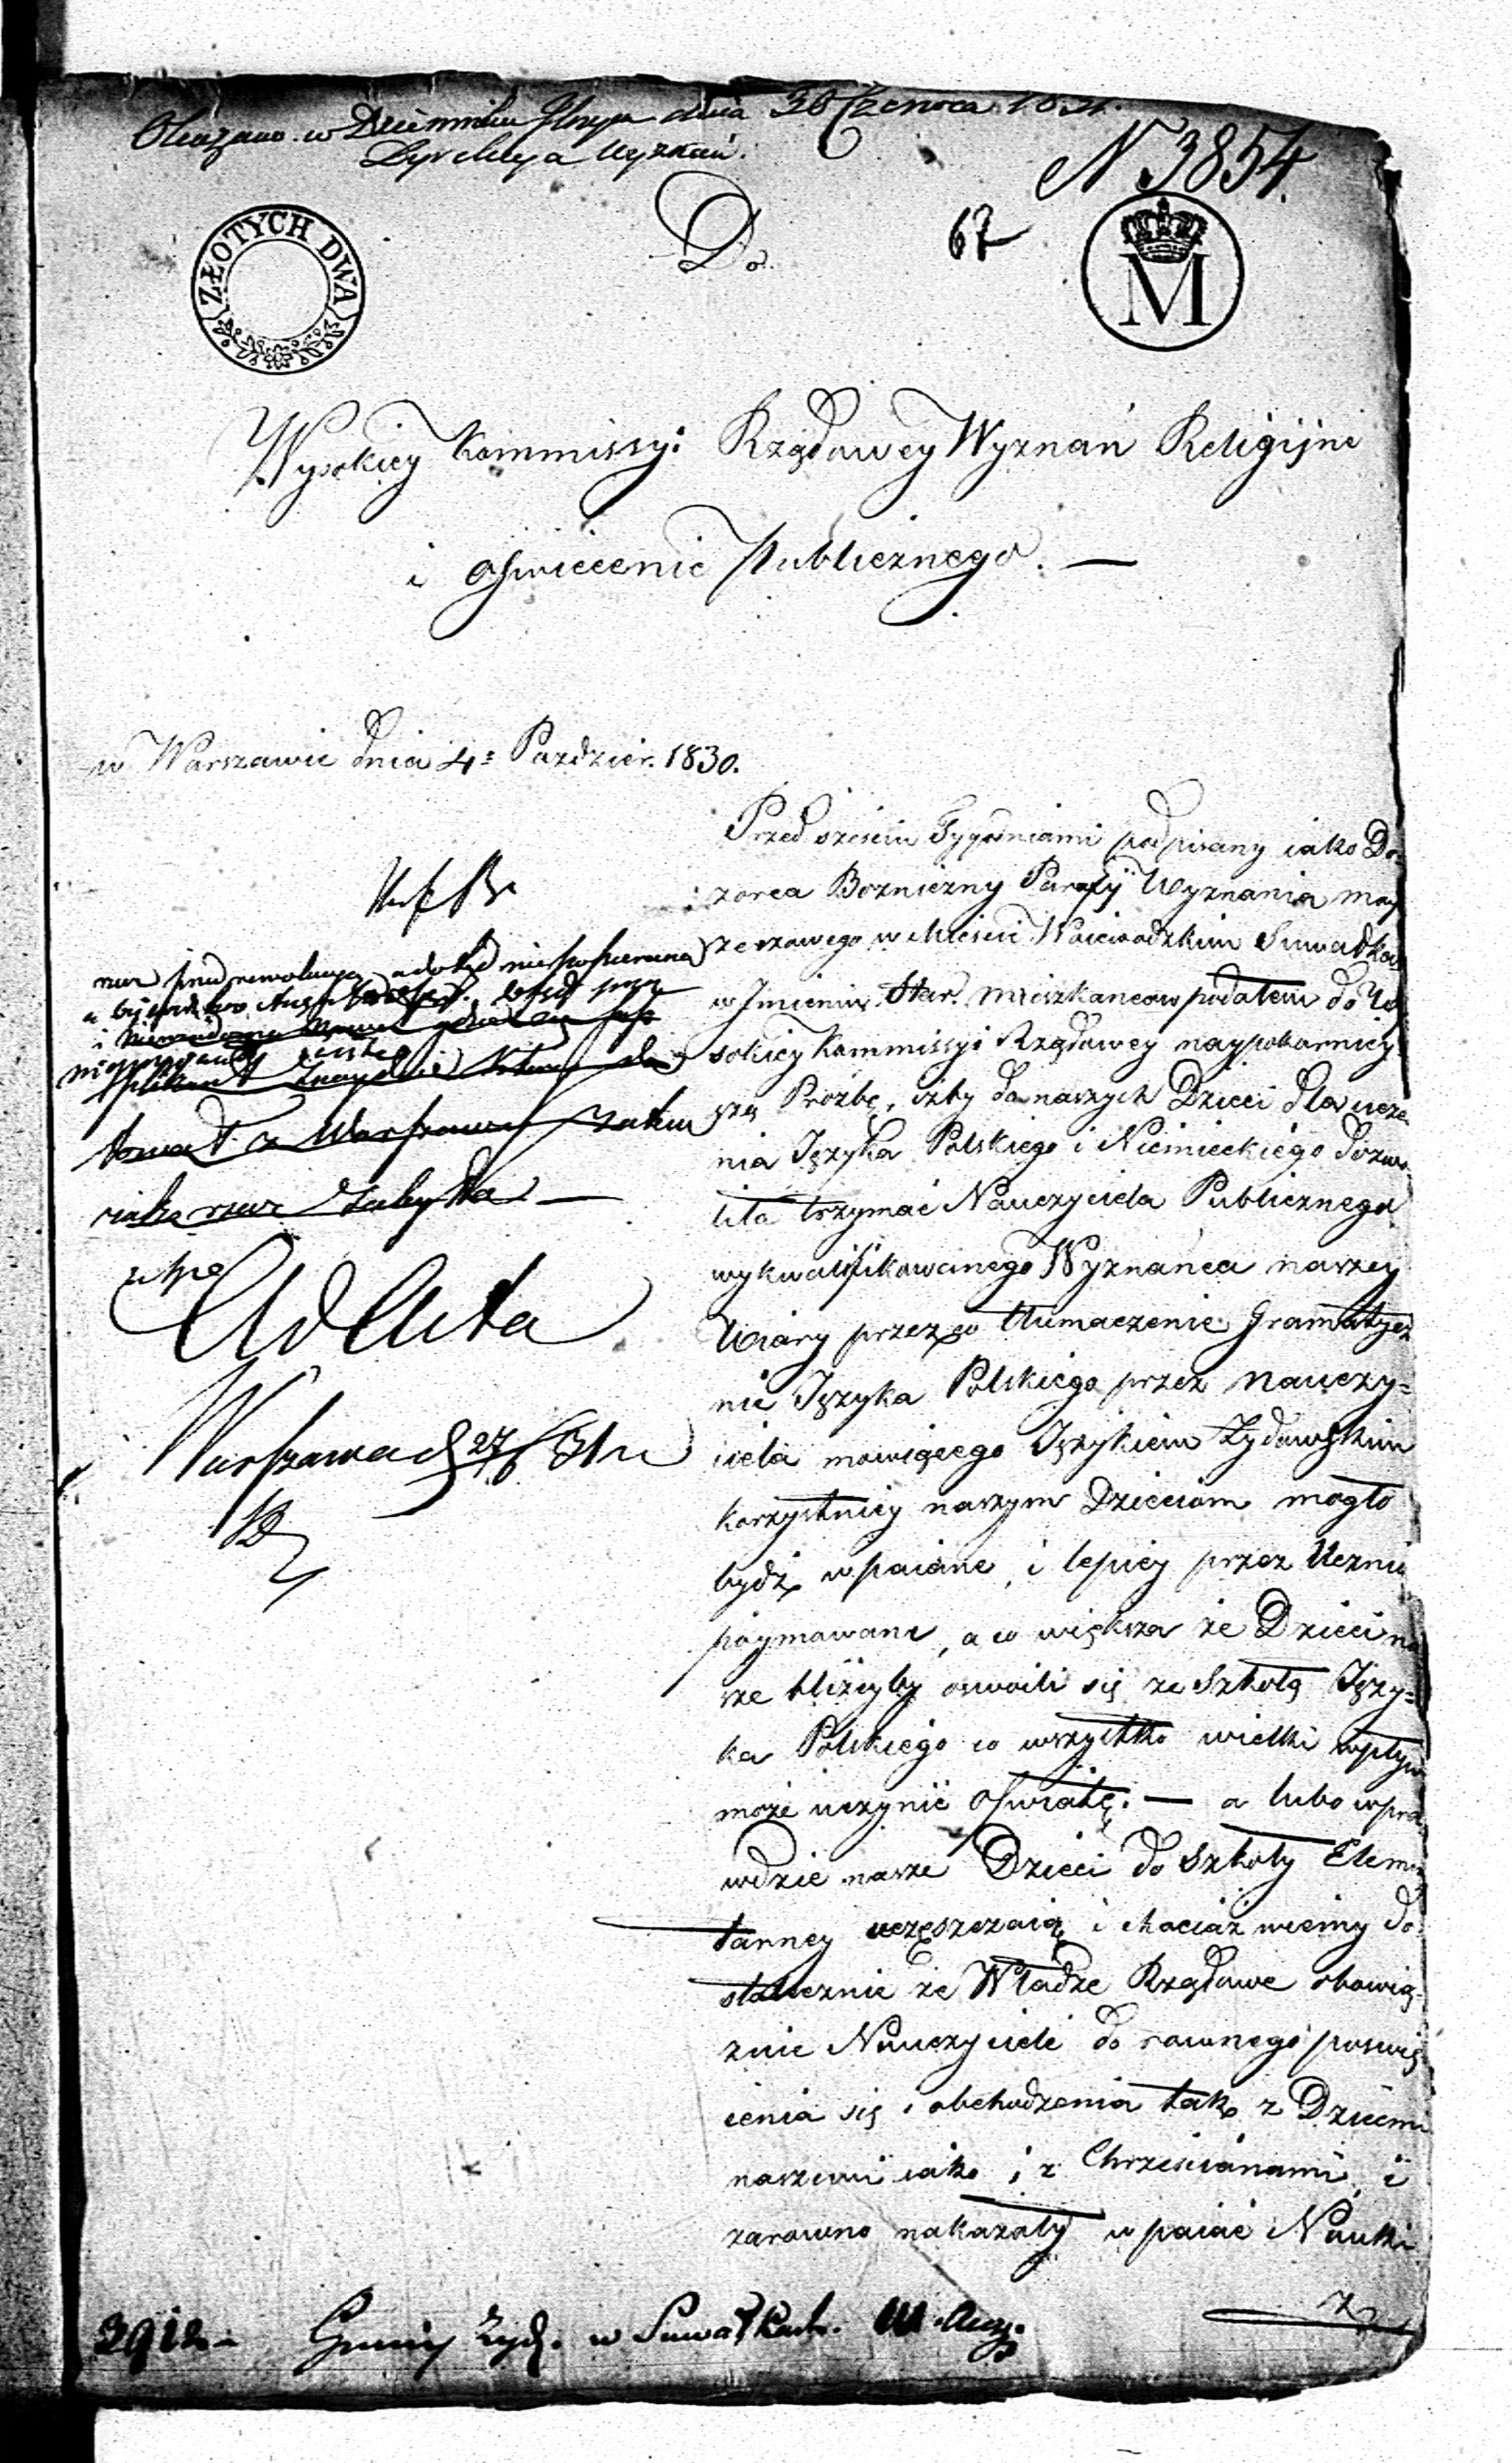 Okazano w Dzienniku Głnym dnia 30 Czerwca 1831.
Dyrekcya Wyznań.
N 3854.
67
ZŁOTYCH DWA
M
Do
Wysokiey Kommissyi Rządowey Wyznań Religijne
i Oświecenie Publicznego. —
w Warszawie dnia 4: Paździer. 1830.
Przed sześciu Tygodniami podpisany iako Do-
zorca Bozniczny Parafij Wyznania moy
żeszowego w Mieście Woiewodzkim Suwałka
w Jmieniu Star. mieszkancow podałem do Wy
sokiey Kommissyi Rządowey naypokorniey
szą Prozbę, iżby do naszych Dzieci dla ucze
nia Języka Polskiego i Niemieckiego dozwo
liła trzymać Nauczyciela Publicznego
wykwalifikowanego Wyznańca naszey
Wiary przez co tłumaczenie Gramatycz
nie Języka Polskiego przez nauczy=
ciela mowiącego Językiem Żydowskim
korzystniey naszym Dzieciom mogło
bydź wpaiane, i lepiey przez Uczni
poymowane, a co większa że Dzieci na
sze bliżeyby oswoili się ze Szkołą Języ=
ka Polskiego co wszystko wielki wpływ
może uczynić Oświatę. — a lubo wpra
wdzie nasze Dzieci do Szkoły Elemen
tarney uczęszczaią i chociaż wiemy do
statecznie że Władze Rządowe obowią-
zuie Nauczyciele do rownego poswię
cenia się i obchodzenia tak z Dziećmi
naszemi iako i z Chrześcianami, i
zarowno nakazały wpaiać Nauki
rzecz przed rewolucyą a dotąd niepopierana
tował z Warszawy zatem
rzecz zabytka —
ad Acta
Warszawa d 27/6 31 r
3912 - Gminy Żyd. w Suwałkach. W. Aug.